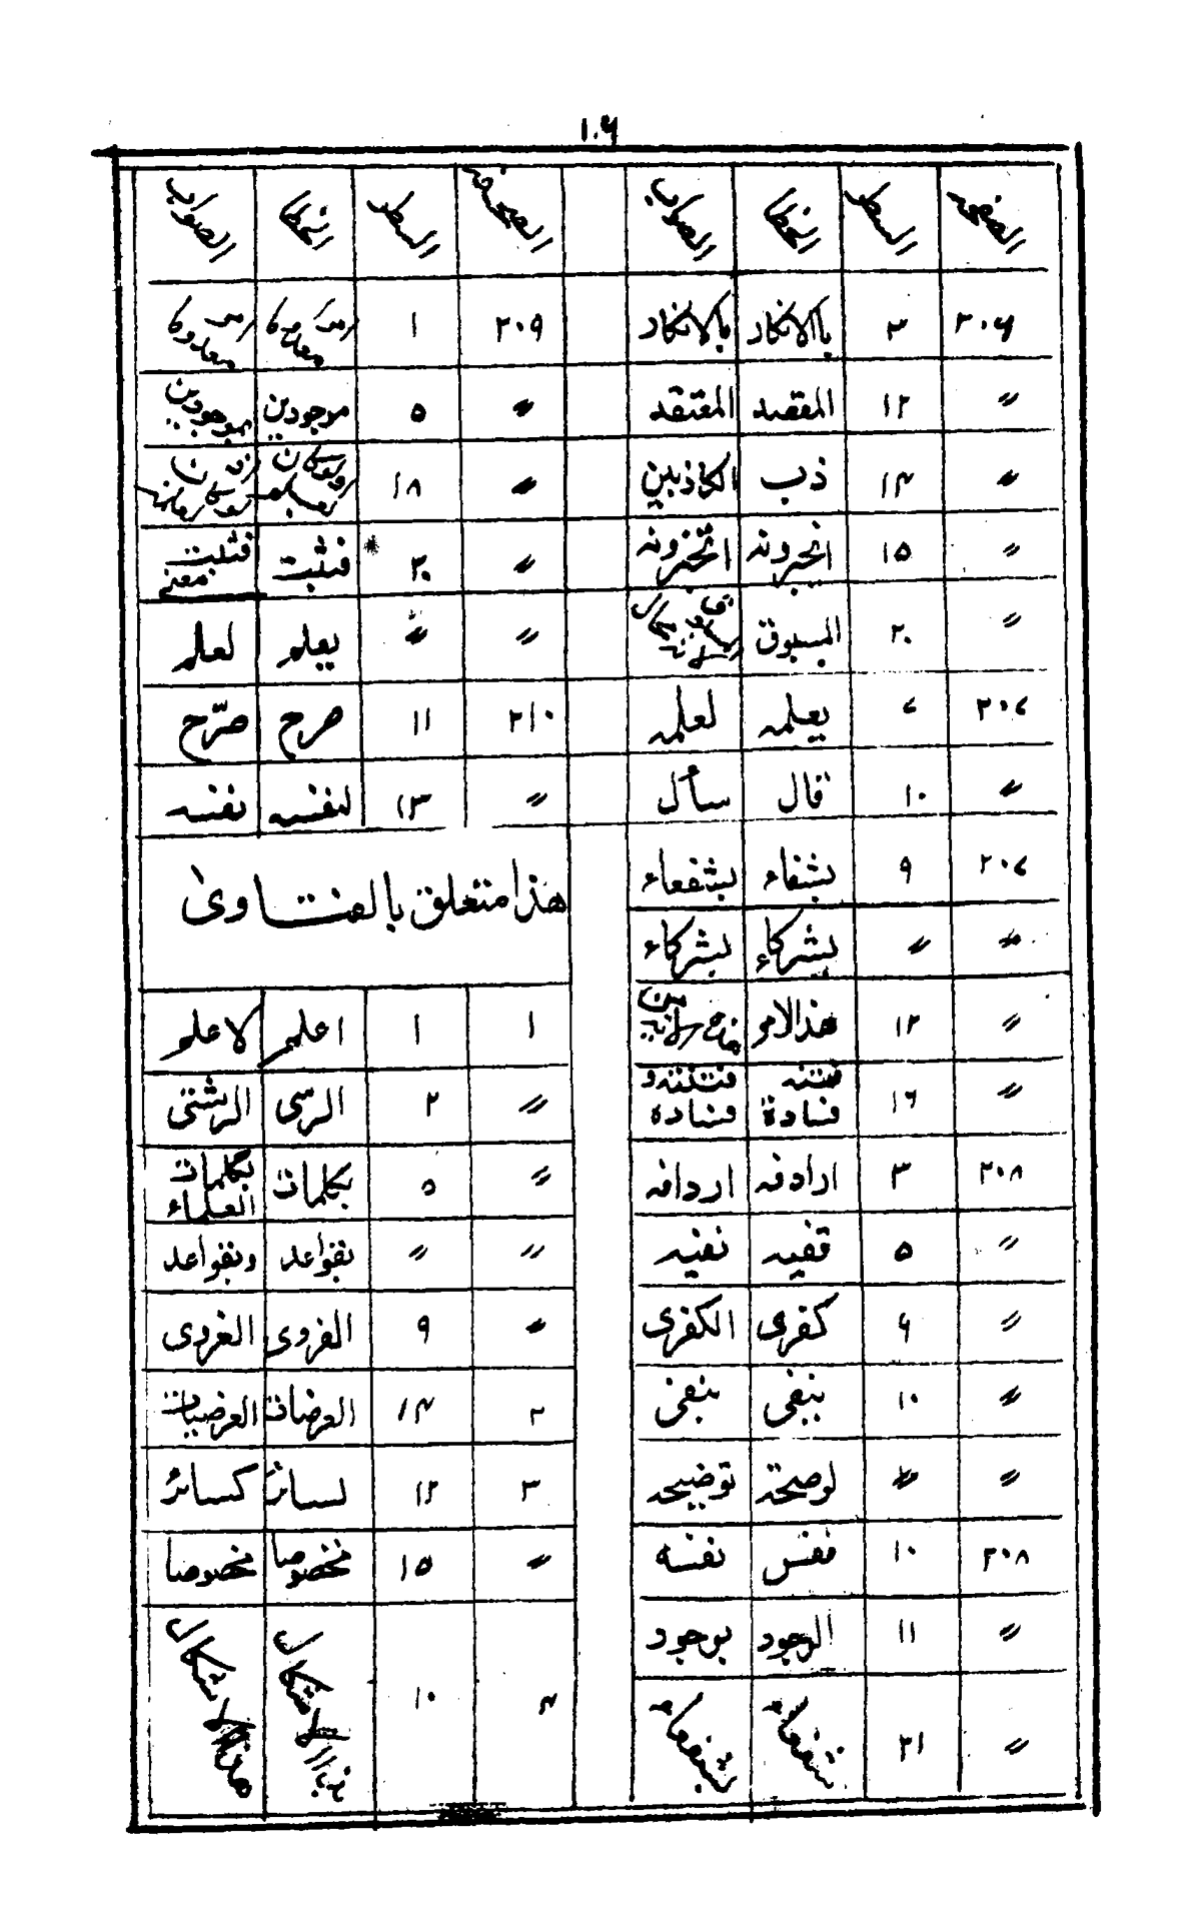 ١٠٦
الصفحة السطر الخطا الصواب
٢٠٦ ٣ باالانكار بالانكار
〃 ١٢ المقصد المعتقد
〃 ١٤ ذب الكاذبين
〃 ١٥
〃 ٢٠ المسبوق
٢٠٧ ٧ يعلمه لعلمه
〃 ١٠ قال سأل
٢٠٧ ٩ بشفاء بشفعاء
〃 〃 بشركاء لبشركاء
〃 ١٢ هذالامر
〃 ١٦ فتنته فسادة فتنته و فساده
٢٠٨ ٣ ارادفه اردافه
〃 ٥ قفيه نفيه
〃 ٦ كفرى الكفرى
〃 ١٠ ينبفى ينبغى
〃 〃 لوصحته توضيحه
٢٠٨ ١٠ نفس نفسه
〃 ١١ الوجود بوجود
〃 ٢١ شفعاء لشفعاء
الصحيفة السطر الخطا الصواب
٢٠٩ ١
〃 ٥ موجودين بموجودين
〃 ١٨
〃 ٢٠ فثبت فثبت معنى
〃 〃 يعلم لعلم
٢١٠ ١١ صرح صرّح
〃 ١٣ لنفسه نفسه
هذا متعلق بالفتاوى
١ ١ اعلم لاعلم
〃 ٢ الرسى الرشتى
〃 ٥ بكلمات بكلمات العلماء
〃 〃 بقواعد وبقواعد
〃 ٩ الفروى الغروى
٢ ١٤ العرضات العرضيات
٣ ١٢ لسائر كسائر
〃 ١٥ مخصوصا مخصوصا
٤ ١٠ هذا الاشكال